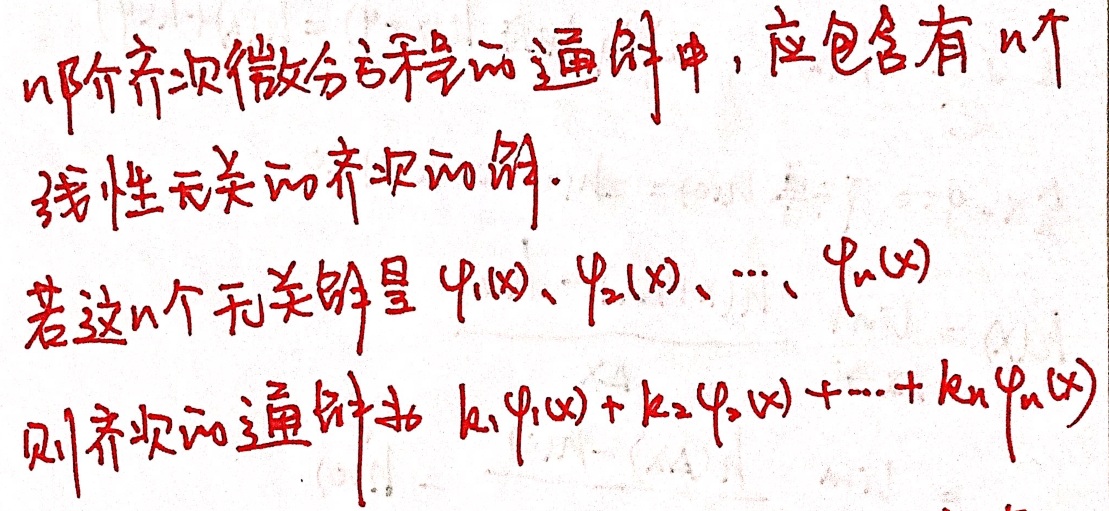 n阶齐次微分方程的通解中，应包含有n个
线性无关的齐次的解.
若这n个无关解是 φ₁(x)、φ₂(x)、…、φₙ(x)
则齐次的通解为 k₁φ₁(x) + k₂φ₂(x) + … + kₙφₙ(x)